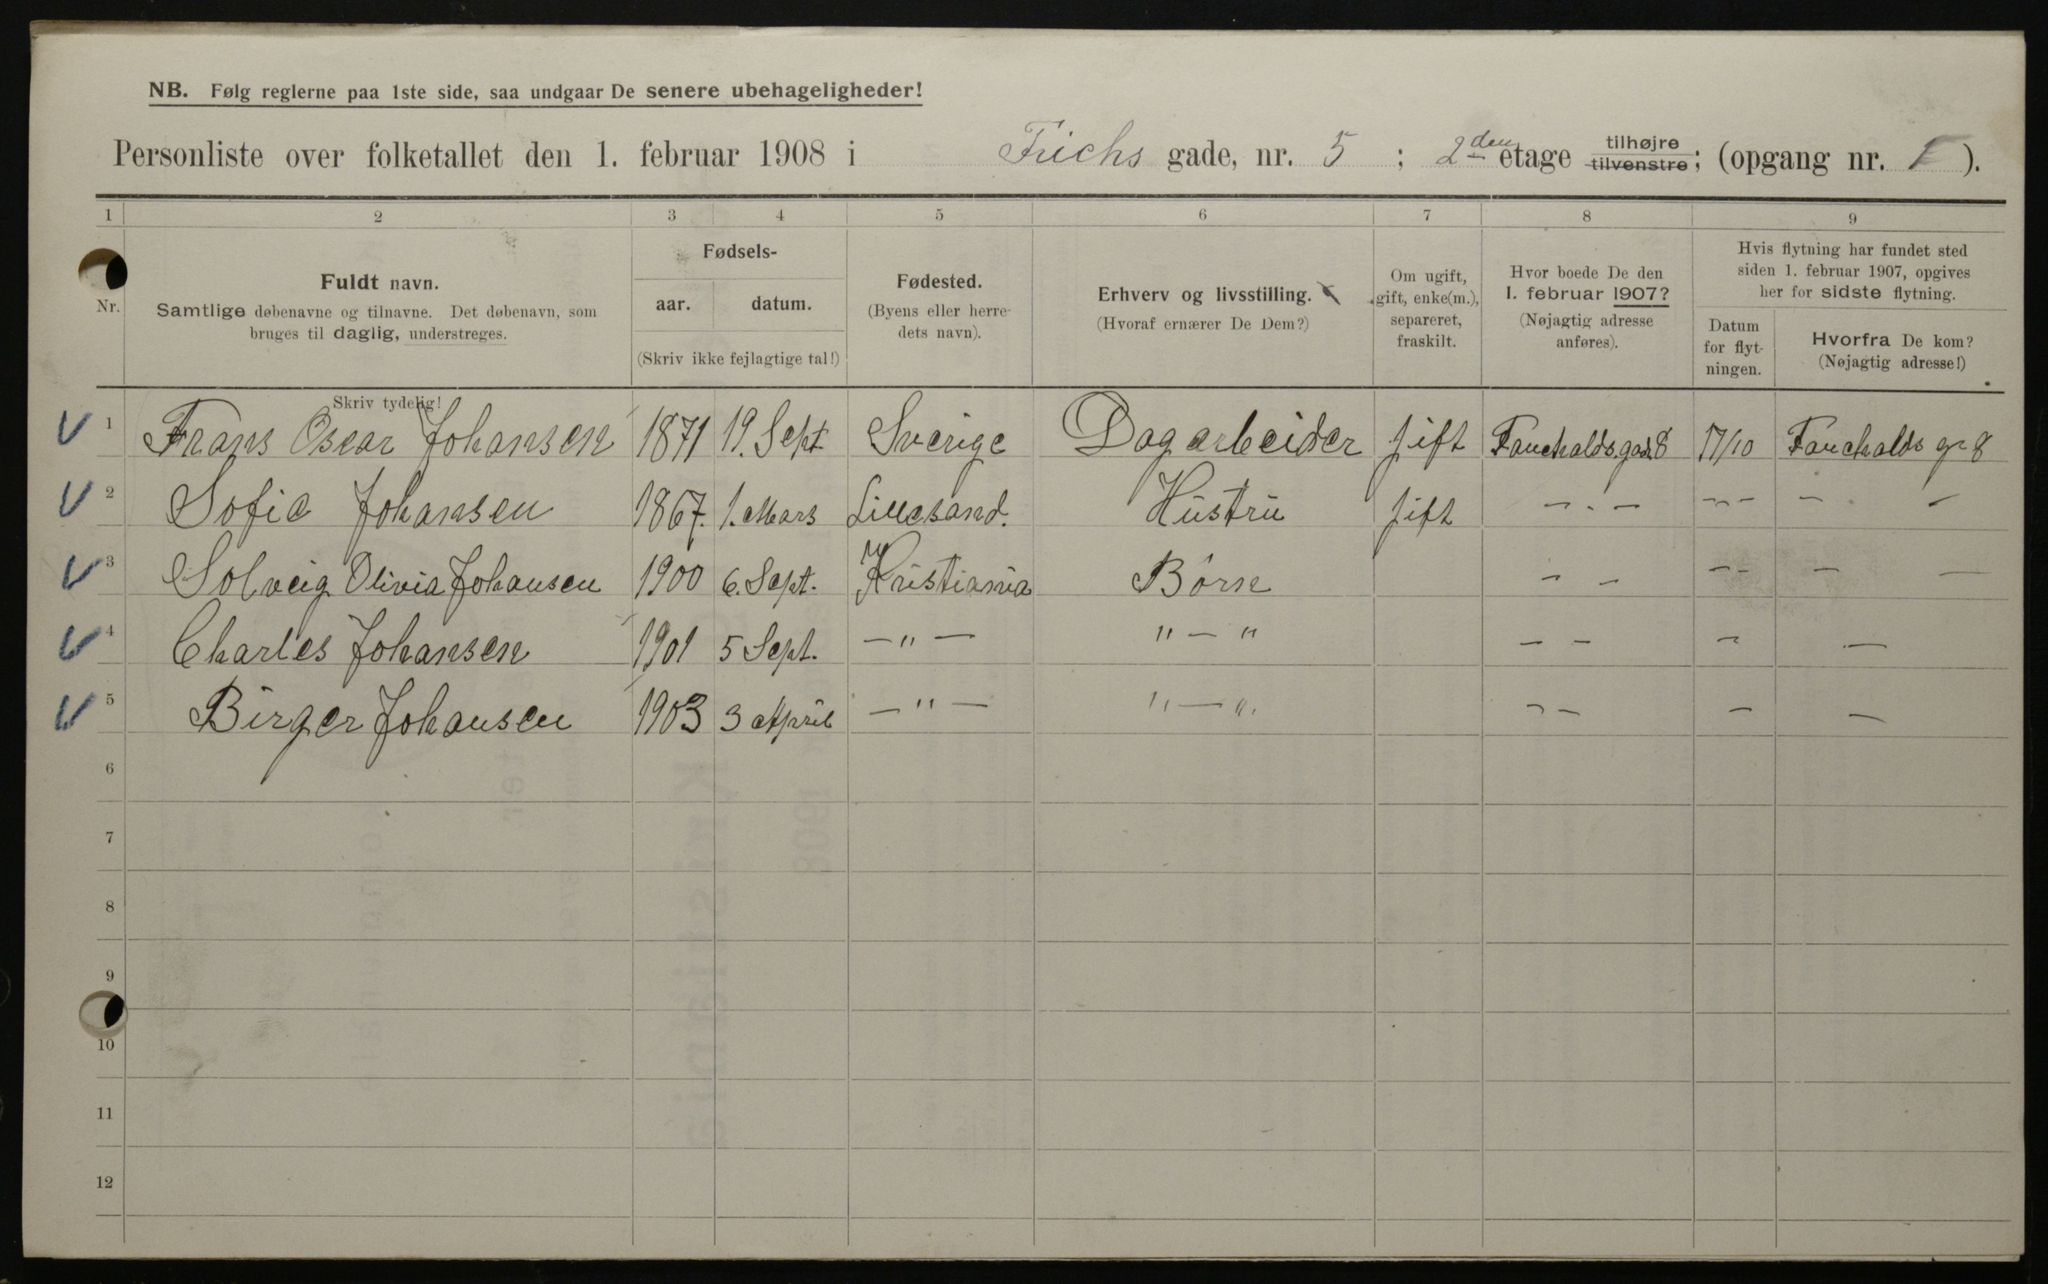 NB. Følg reglerne paa 1ste side, saa undgaar De senere ubehageligheder!
Personliste over folketallet den 1. februar 1908 i Frichs gade, nr. 5 ; 2den etage tilhøjre tilvenstre; (opgang nr. ).
1 2 3 4 5 6 7 8 9
Nr.
Fuldt navn.
Samtlige døbenavne og tilnavne. Det døbenavn, som
bruges til daglig, understreges.
Skriv tydelig!
Fødsels-
aar. datum.
(Skriv ikke fejlagtige tal!)
Fødested.
(Byens eller herre-
dets navn).
Erhverv og livsstilling.
(Hvoraf ernærer De Dem?)
Om ugift,
gift, enke(m.),
separeret,
fraskilt.
Hvor boede De den
1. februar 1907?
(Nøjagtig adresse
anføres).
Hvis flytning har fundet sted
siden 1. februar 1907, opgives
her for sidste flytning.
Datum
for flyt-
ningen.
Hvorfra De kom?
(Nøjagtig adresse!)
1 Frans Oscar Johansen 1871 19. Sept Sverige Dagarbeider gift Fauchalds.gade 8 17/10 Fauchalds g 8
2 Sofie Johansen 1867. 1. Mars Lillesand. Hustru gift - . - -- - -
3 Solveig Olivia Johansen 1900 6. Sept. Kristiania Börn - - -- - -
4 Charles Johansen 1901 5 Sept. - " - " - " - - - -
5 Birger Johansen 1903 3 April - " - " - ". - - - -
6
7
8
9
10
11
12